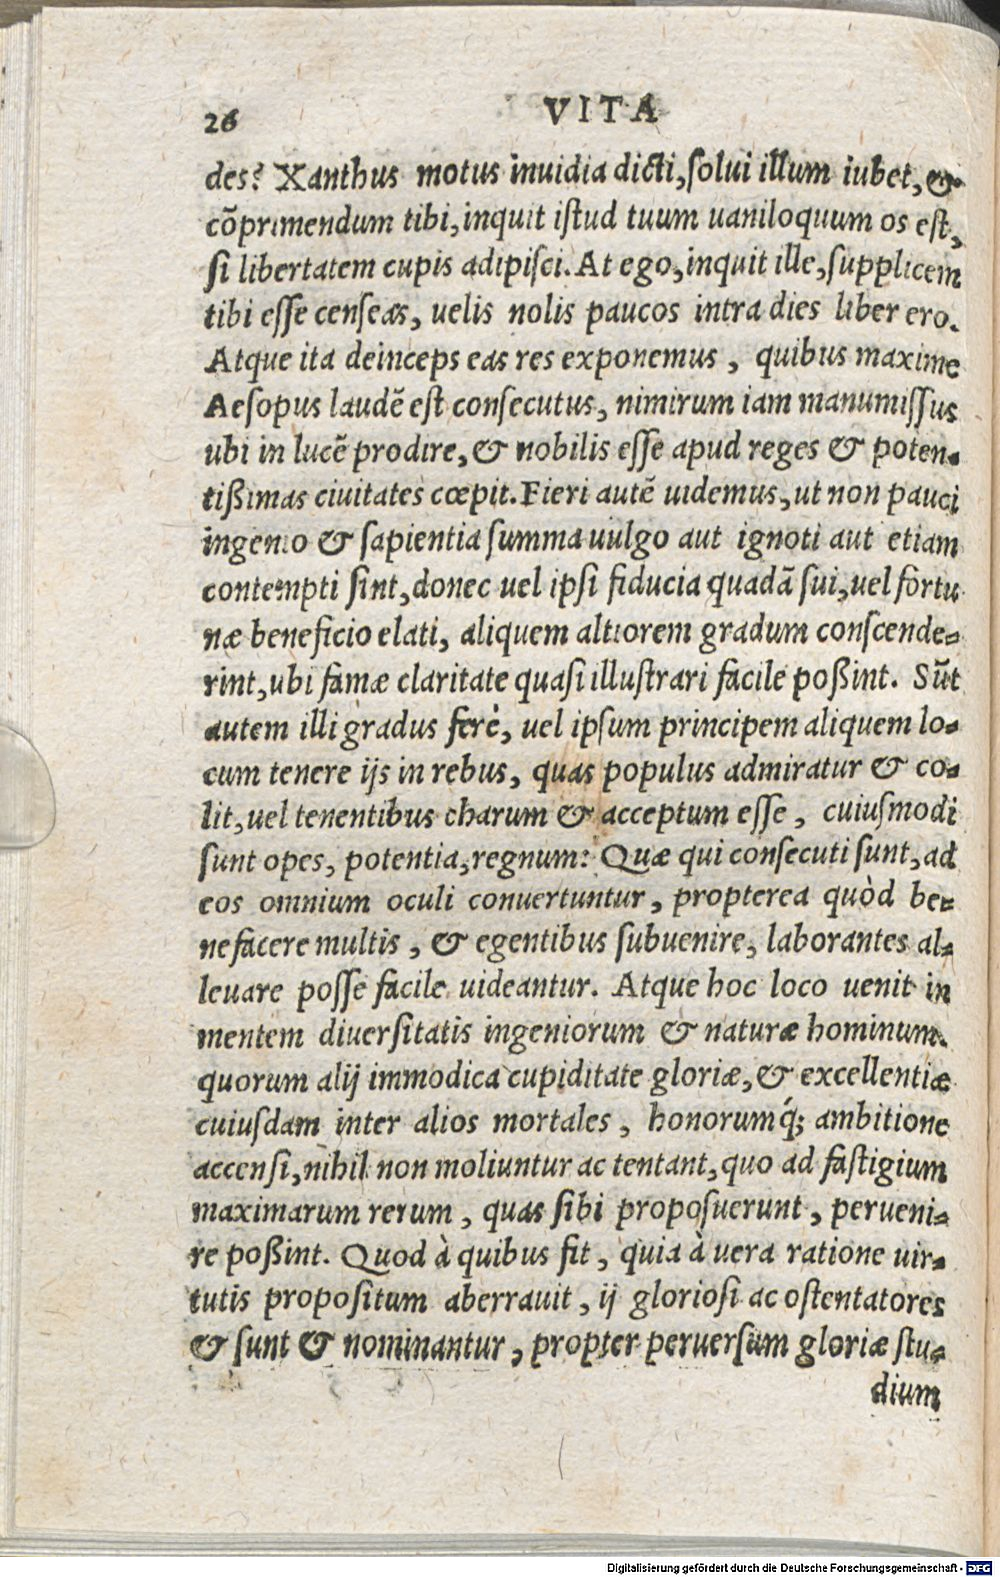 26 VITA
des? Xanthus motus inuidia dicti, solui illum iubet, &
cõprimendum tibi, inquit istud tuum uaniloquum os est,
si libertatem cupis adipisci. At ego, inquit ille, supplicem
tibi esse censeas, uelis nolis paucos intra dies liber ero.
Atque ita deinceps eas res exponemus, quibus maxime
Aesopus laudẽ est consecutus, nimirum iam manumissus
ubi in lucẽ prodire, & nobilis esse apud reges & poten-
tißimas ciuitates cœpit. Fieri autẽ uidemus, ut non pauci
ingenio & sapientia summa uulgo aut ignoti aut etiam
contempti sint, donec uel ipsi fiducia quadã sui, uel fortu
næ beneficio elati, aliquem altiorem gradum conscende-
rint, ubi famæ claritate quasi illustrari facile poßint. Sũt
autem illi gradus ferè, uel ipsum principem aliquem lo-
cum tenere ijs in rebus, quas populus admiratur & co-
lit, uel tenentibus charum & acceptum esse, cuiusmodi
sunt opes, potentia, regnum: Quæ qui consecuti sunt, ad
eos omnium oculi conuertuntur, propterea quòd be-
nefacere multis, & egentibus subuenire, laborantes al-
leuare posse facile uideantur. Atque hoc loco uenit in
mentem diuersitatis ingeniorum & naturæ hominum.
quorum alij immodica cupiditate gloriæ, & excellentiæ
cuiusdam inter alios mortales, honorumq́; ambitione
accensi, nihil non moliuntur ac tentant, quo ad fastigium
maximarum rerum, quas sibi proposuerunt, perueni-
re poßint. Quod à quibus fit, quia à uera ratione uir-
tutis propositum aberrauit, ij gloriosi ac ostentatores
& sunt & nominantur, propter peruersum gloriæ stu-
dium
Digitalisierung gefördert durch die Deutsche Forschungsgemeinschaft - DFG